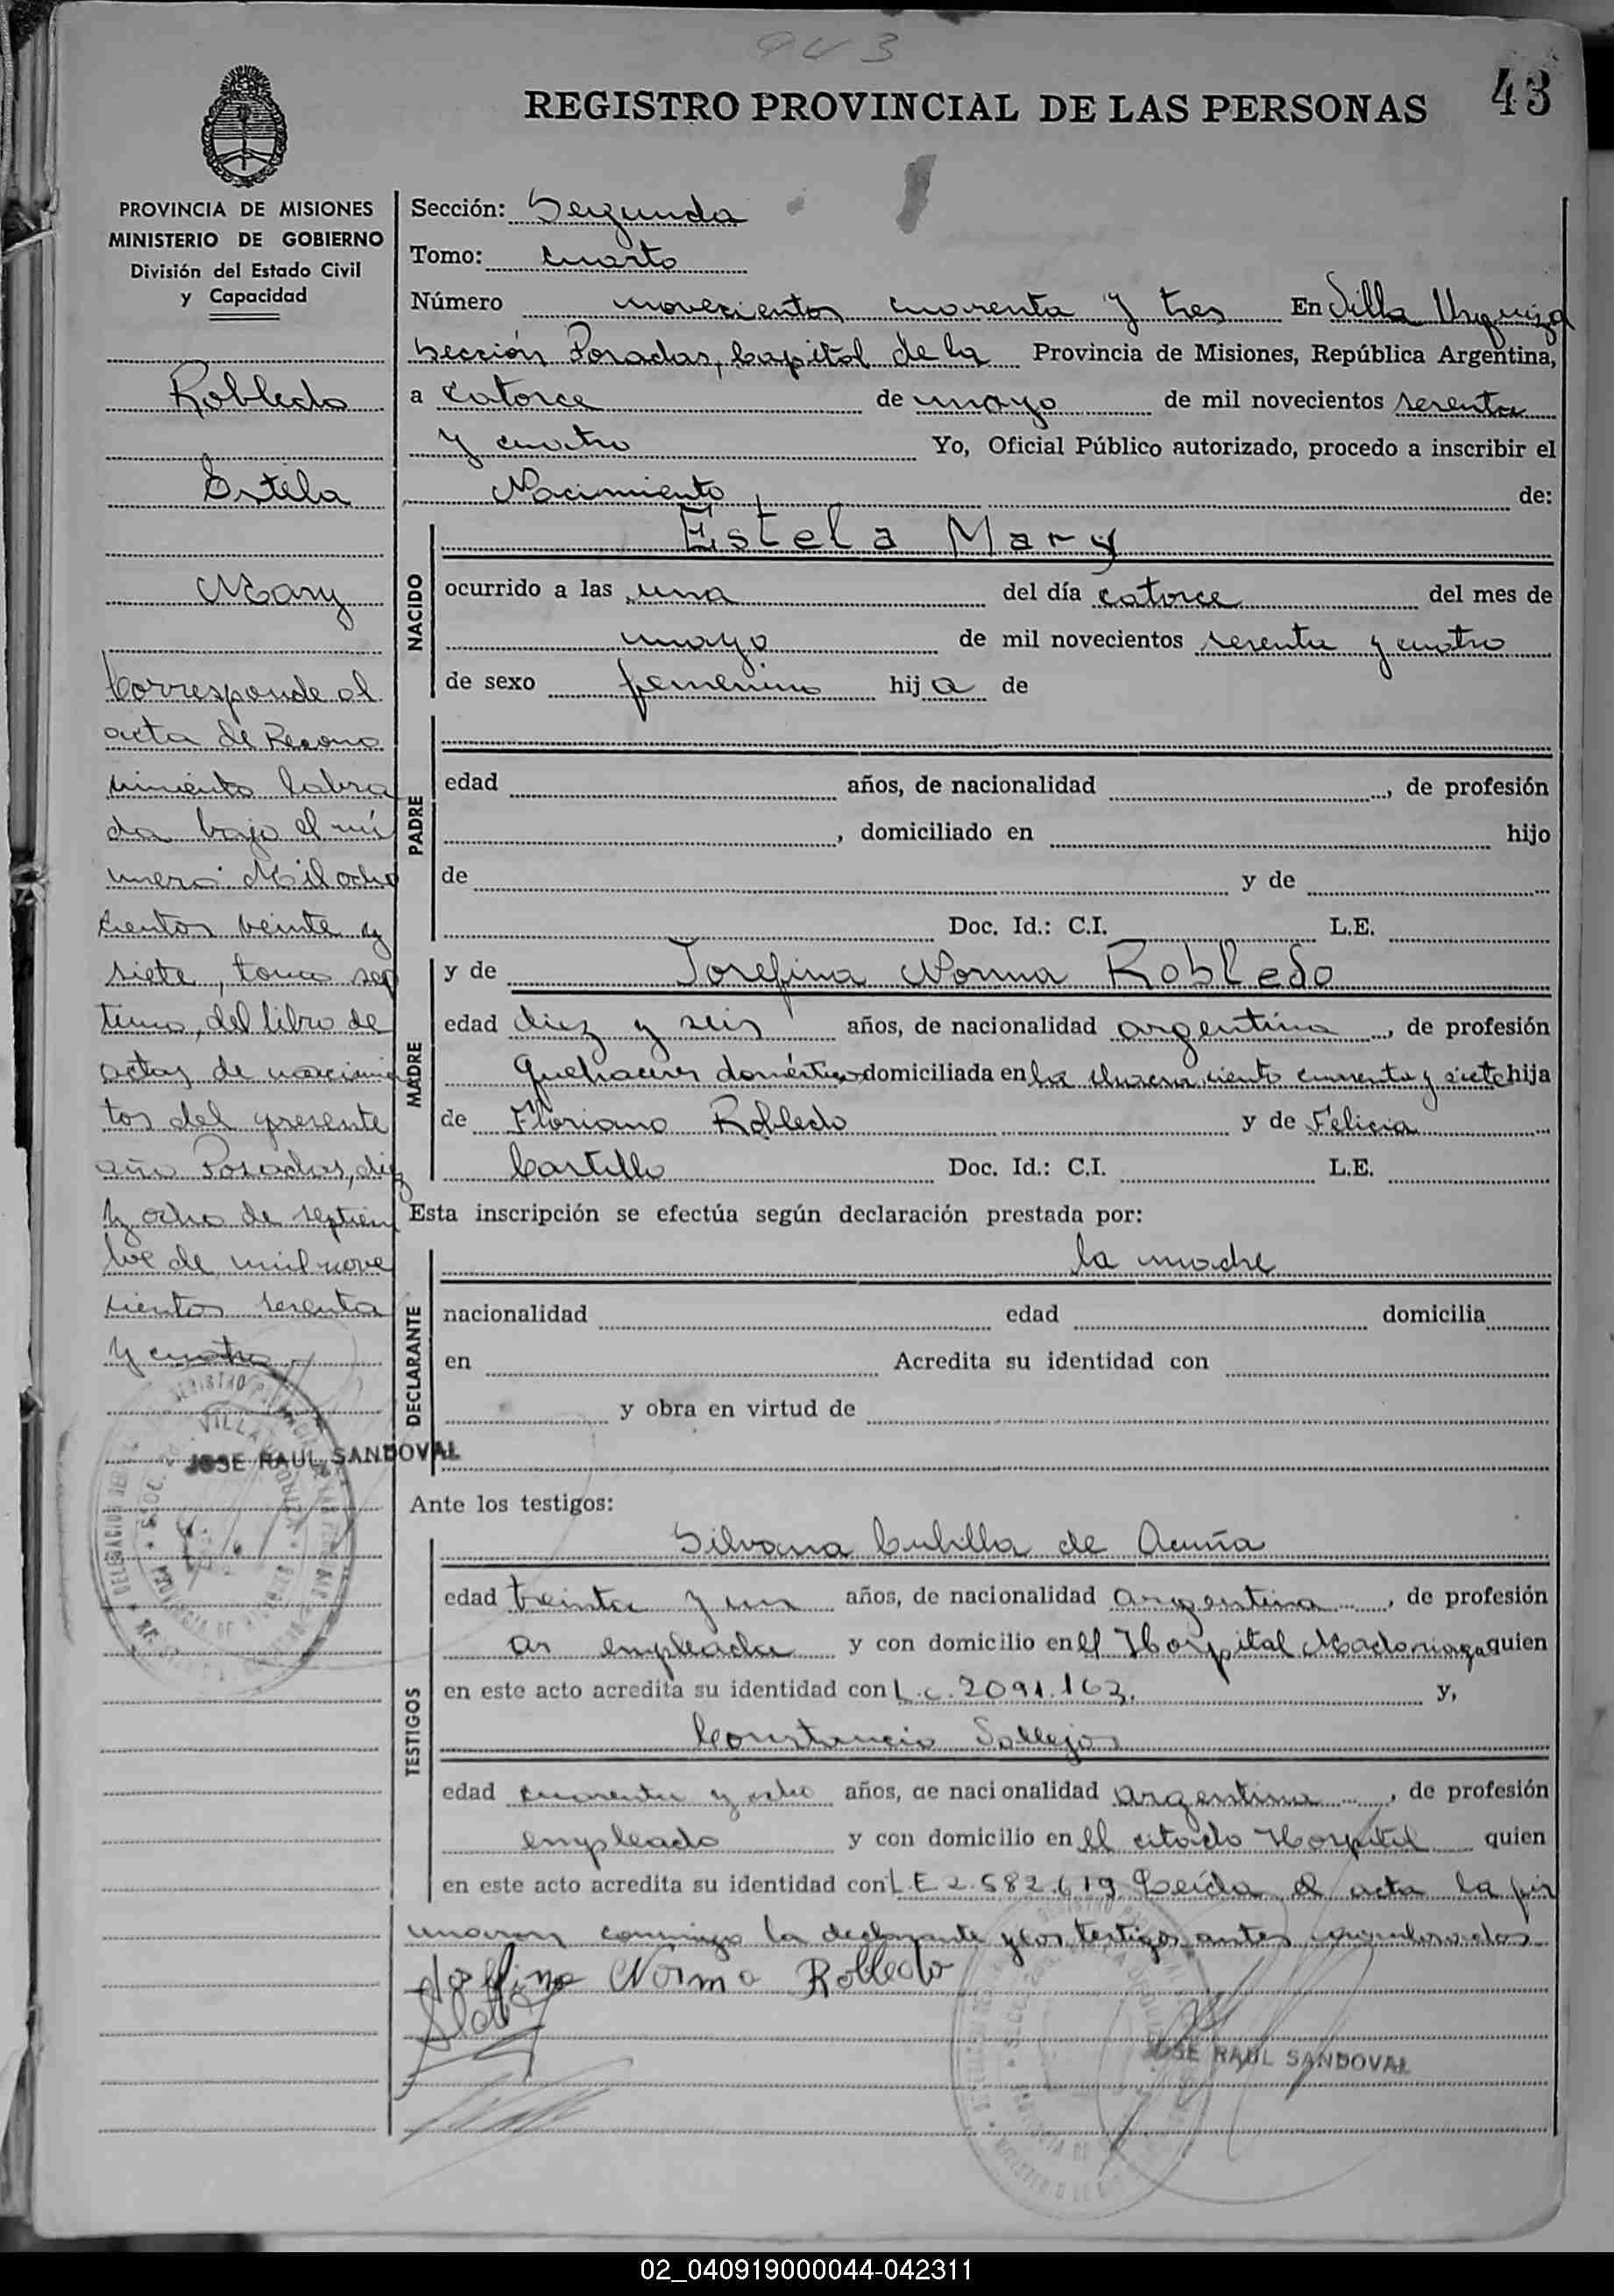 943
43
REGISTRO PROVINCIAL DE LAS PERSONAS
PROVINCIA DE MISIONES
MINISTERIO DE GOBIERNO
División del Estado Civil
y Capacidad
Robledo
Estela
Mary
Corresponde al
acta de Recono
cimiento labra
da bajo el nú
mero Mil ocho
cientos veinte y
siete, tomo sep
timo, del libro de
actas de nacimien
tos del presente
año Posadas, diez
y ocho de septiem
bre de mil nove
cientos sesenta
y cuatro
JOSE RAUL SANDOVAL
Sección: Segunda
Tomo: Cuarto
Número novecientos cuarenta y tres En Villa Urquiza
Sección Posadas, Capital de la Provincia de Misiones, República Argentina,
a Catorce de mayo de mil novecientos sesenta
y cuatro Yo, Oficial Público autorizado, procedo a inscribir el
Nacimiento de:
NACIDO
Estela Mary
ocurrido a las una del día catorce del mes de
mayo de mil novecientos sesenta y cuatro
de sexo femenino hija de
PADRE
edad años, de nacionalidad , de profesión
, domiciliado en hijo
de y de
Doc. Id.: C.I. L.E.
MADRE
y de Josefina Norma Robledo
edad diez y seis años, de nacionalidad argentina, de profesión
Quehaceres domésticos domiciliada en la chacra ciento cuarenta y siete hija
de Floriano Robledo y de Felicia
Castillo Doc. Id.: C.I. L.E.
Esta inscripción se efectúa según declaración prestada por:
DECLARANTE
la madre
nacionalidad edad domicilia
en Acredita su identidad con
y obra en virtud de
Ante los testigos:
TESTIGOS
Silvana Cubilla de Acuña
edad treinta y un años, de nacionalidad argentina, de profesión
empleada y con domicilio en el Hospital Madariaga quien
en este acto acredita su identidad con L.C. 2091.163. y,
Constancio Vallejos
edad cuarenta y ocho años, de nacionalidad argentina, de profesión
empleado y con domicilio en el citado Hospital quien
en este acto acredita su identidad con L.E 2.582.619 Leída el acta la fir
maron conmigo la declarante y los testigos antes nombrados
Josefina Norma Robledo
JOSE RAUL SANDOVAL
02_040919000044-042311